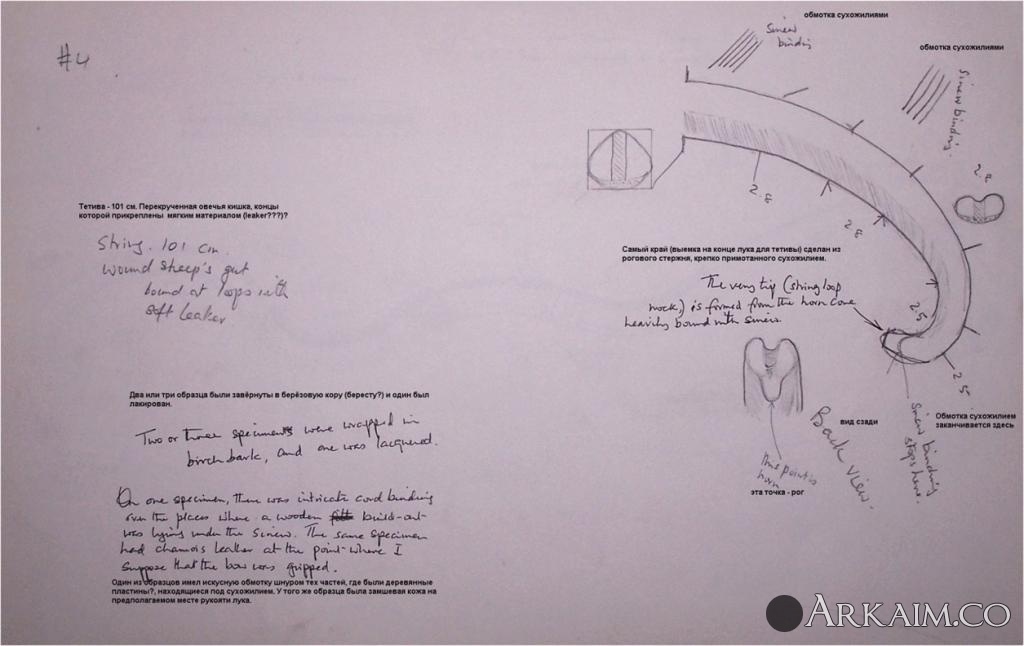 #4
обмотка сухожилиями
Sinew
binding
обмотка сухожилиями
Sinew binding.
2.8
2.8
2.8
2.5
2.5
Тетива - 101 см. Перекрученная овечья кишка, концы
которой прикреплены мягким материалом (leaker???)?
String. 101 cm.
wound sheep's gut
bound at loops with
soft leather
Самый край (выемка на конце лука для тетивы) сделан из
рогового стержня, крепко примотанного сухожилием.
The very tip (string loop
nock,) is formed from the horn core
heavily bound with sinew.
Два или три образца были завёрнуты в берёзовую кору (бересту?) и один был
лакирован.
Two or three specimens were wrapped in
birch bark, and one was lacquered.
вид сзади
Back view.
Обмотка сухожилием
заканчивается здесь
Sinew binding
stops here.
This point is
horn
эта точка - рог
On one specimen, there was intricate cord binding
over the places where a wooden build-out
was lying under the sinew. The same specimen
had chamois leather at the point where I
suppose that the bow was gripped.
Один из образцов имел искусную обмотку шнуром тех частей, где были деревянные
пластины?, находящиеся под сухожилием. У того же образца была замшевая кожа на
предполагаемом месте рукояти лука.
ARKAIM.CO